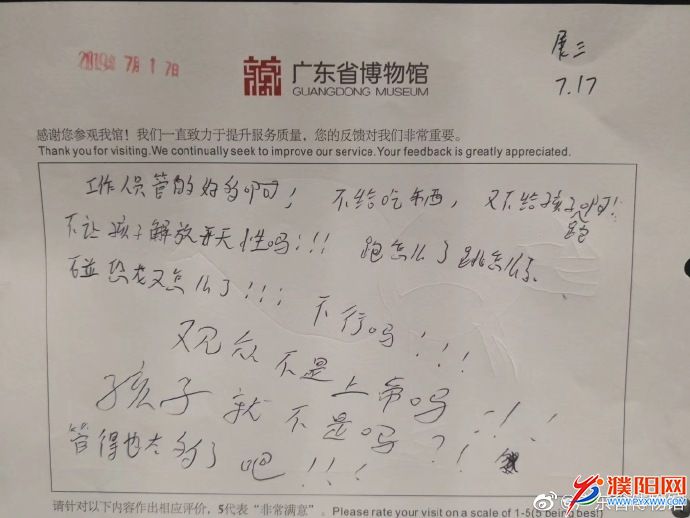 2019年7月17日
展三
7.17
广东省博物馆
GUANGDONG MUSEUM
感谢您参观我馆！我们一直致力于提升服务质量，您的反馈对我们非常重要。
Thank you for visiting.We continually seek to improve our service.Your feedback is greatly appreciated.
工作人员管的好多啊！ 不给吃东西，又不给孩子跑啊！
不让孩子解放天性吗！！！ 跑怎么了跳怎么了
碰恐龙又怎么了！！！ 不行吗！！！
观众不是上帝吗！！！
孩子就不是吗？！！
管得也太多了吧！！！
请针对以下内容作出相应评价，5代表“非常满意”。Please rate your visit on a scale of 1-5(5 being best)
濮阳网
WWW.PYXWW.COM